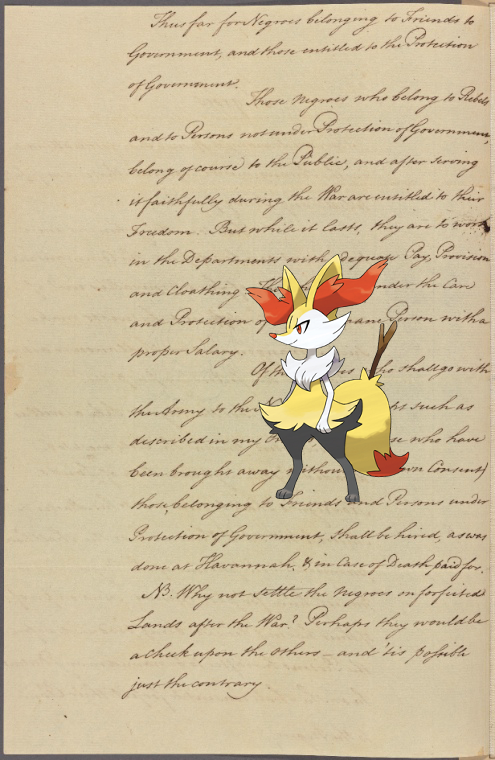 Thus far for Negroes belonging to Friends to
Government, and those entitled to the Protection
of Government.
Those Negroes who belong to Rebels
and to Persons not under Protection of Government,
belong of course to the Public, and after serving
it faithfully during the War are entitled to their
Freedom. But while it lasts, they are to work
in the Departments with adequate Pay, Provision
and Cloathing under the Care
and Protection of Person with a
proper Salary.
Of the who shall go with
the Army to the such as
described in my who have
been brought away without own Consent)
those belonging to Friends and Persons under
Protection of Government, shall be hired, as was
done at Havannah, & in Case of Death paid for.
NB. Why not settle the Negroes on forfeited
Lands after the War? Perhaps they would be
a check upon the others – and 'tis possible
just the contrary